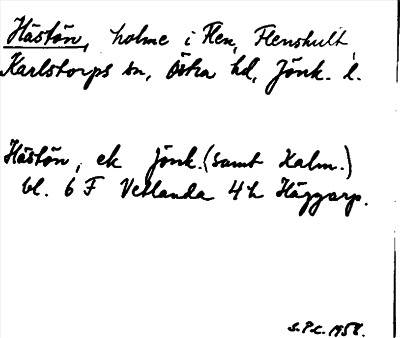 Hästön, holme i Flen, Flenshult,
Karlstorps sn, Östra hd, Jönk. l.
Hästön, ek Jönk. (samt Kalm.)
bl. 6 F Vetlanda 4 h Häggarp.
S.P.C. 1958.